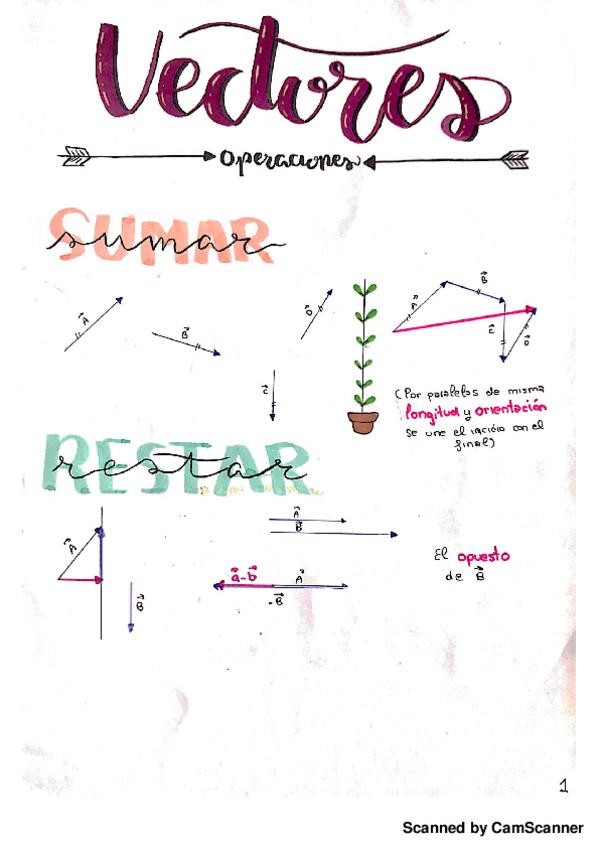 Vectores
operaciones
SUMAR
sumar
A
B
C
D
A
B
C
D
(Por paralelas de misma
longitud y orientación
se une el inicio con el
final)
RESTAR
restar
A
B
A
B
a-b
A
-B
El opuesto
de B
1
Scanned by CamScanner